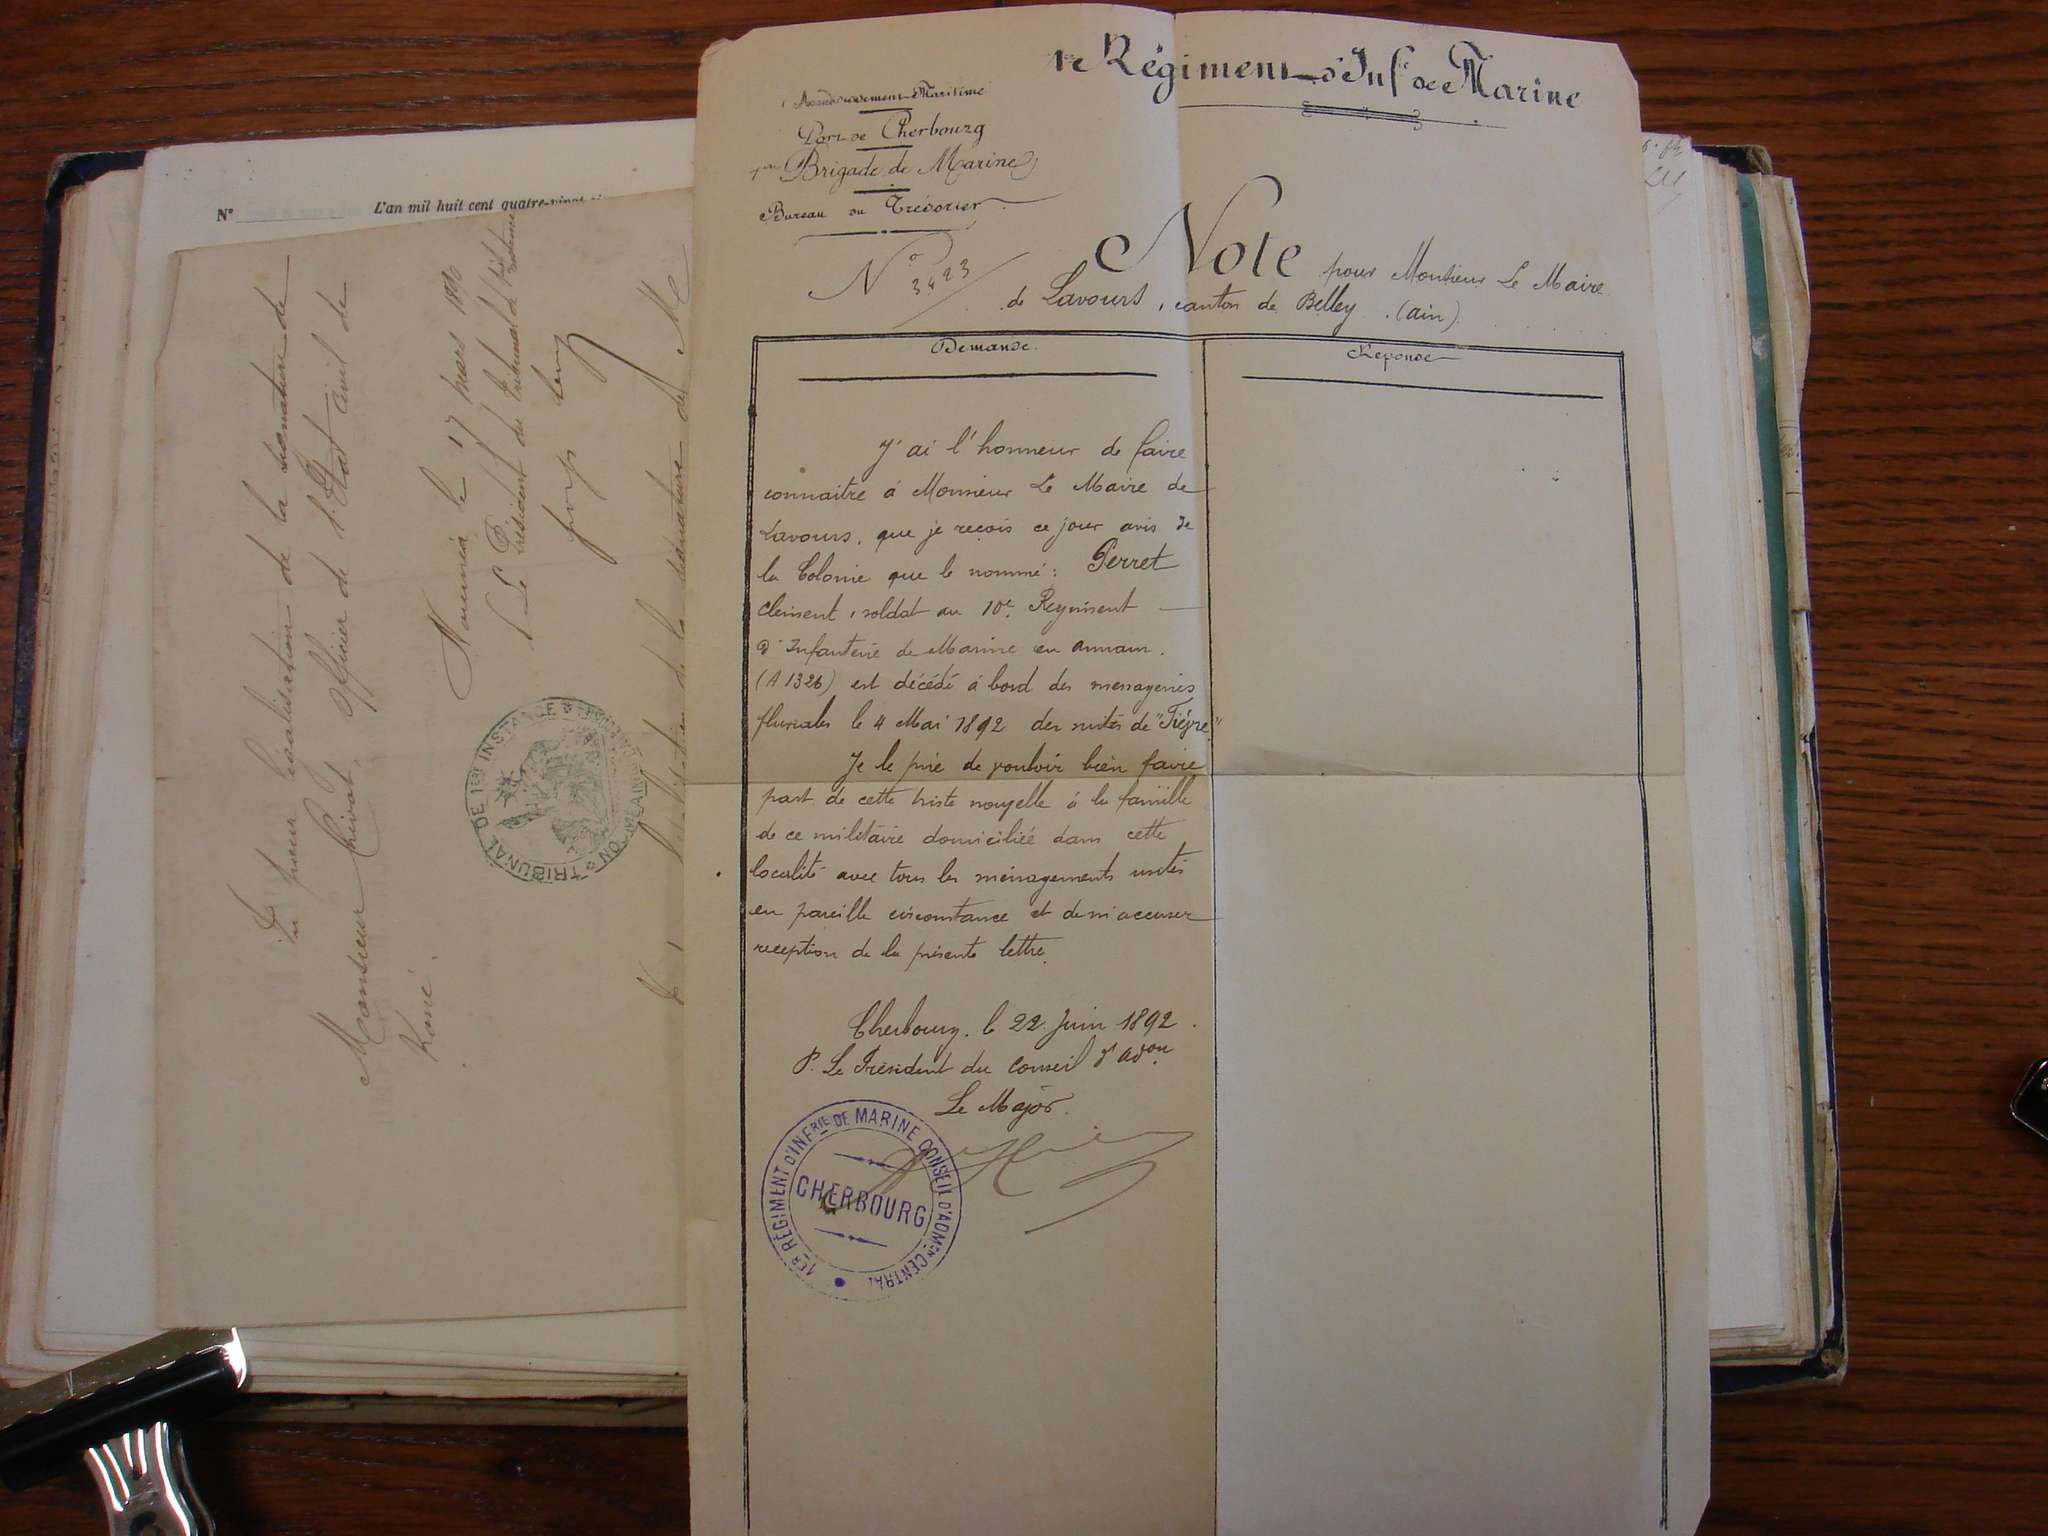 1e Régiment d'Infie de Marine
Arrondissement Maritime
Port de Cherbourg
1ère Brigade de Marine
Bureau du Trésorier
No 3423
Note pour Monsieur Le Maire
de Lavours, canton de Belley. (ain)
Demande.
Réponse
J'ai l'honneur de faire
connaitre à Monsieur Le Maire de
Lavours, que je reçois ce jour avis de
la Colonie que le nommé : Perret
Clément, soldat au 10e Regiment
d'Infanterie de Marine en annam.
(A 1326) est décédé à bord des messageries
fluviales le 4 Mai 1892 des suites de "Fièvre"
Je le prie de vouloir bien faire
part de cette triste nouvelle à la famille
de ce militaire domiciliée dans cette
localité avec tous les ménagements usités
en pareille circonstance et de m'accuser
reception de la présente lettre.
Cherbourg. le 22 Juin 1892.
P. Le Président du Conseil d'adon
Le Major.
1ER RÉGIMENT D'INFRIE DE MARINE CONSEIL D'ADMON CENTRAL
CHERBOURG
No L'an mil huit cent quatre-vingt
Monsieur Chivot, Officier de l'Etat Civil de
Koné.
légalisation de la signature de
Nouméa le 17 Mars 1896
Le Président du Tribunal de
TRIBUNAL DE 1ERE INSTANCE
de la signature de M